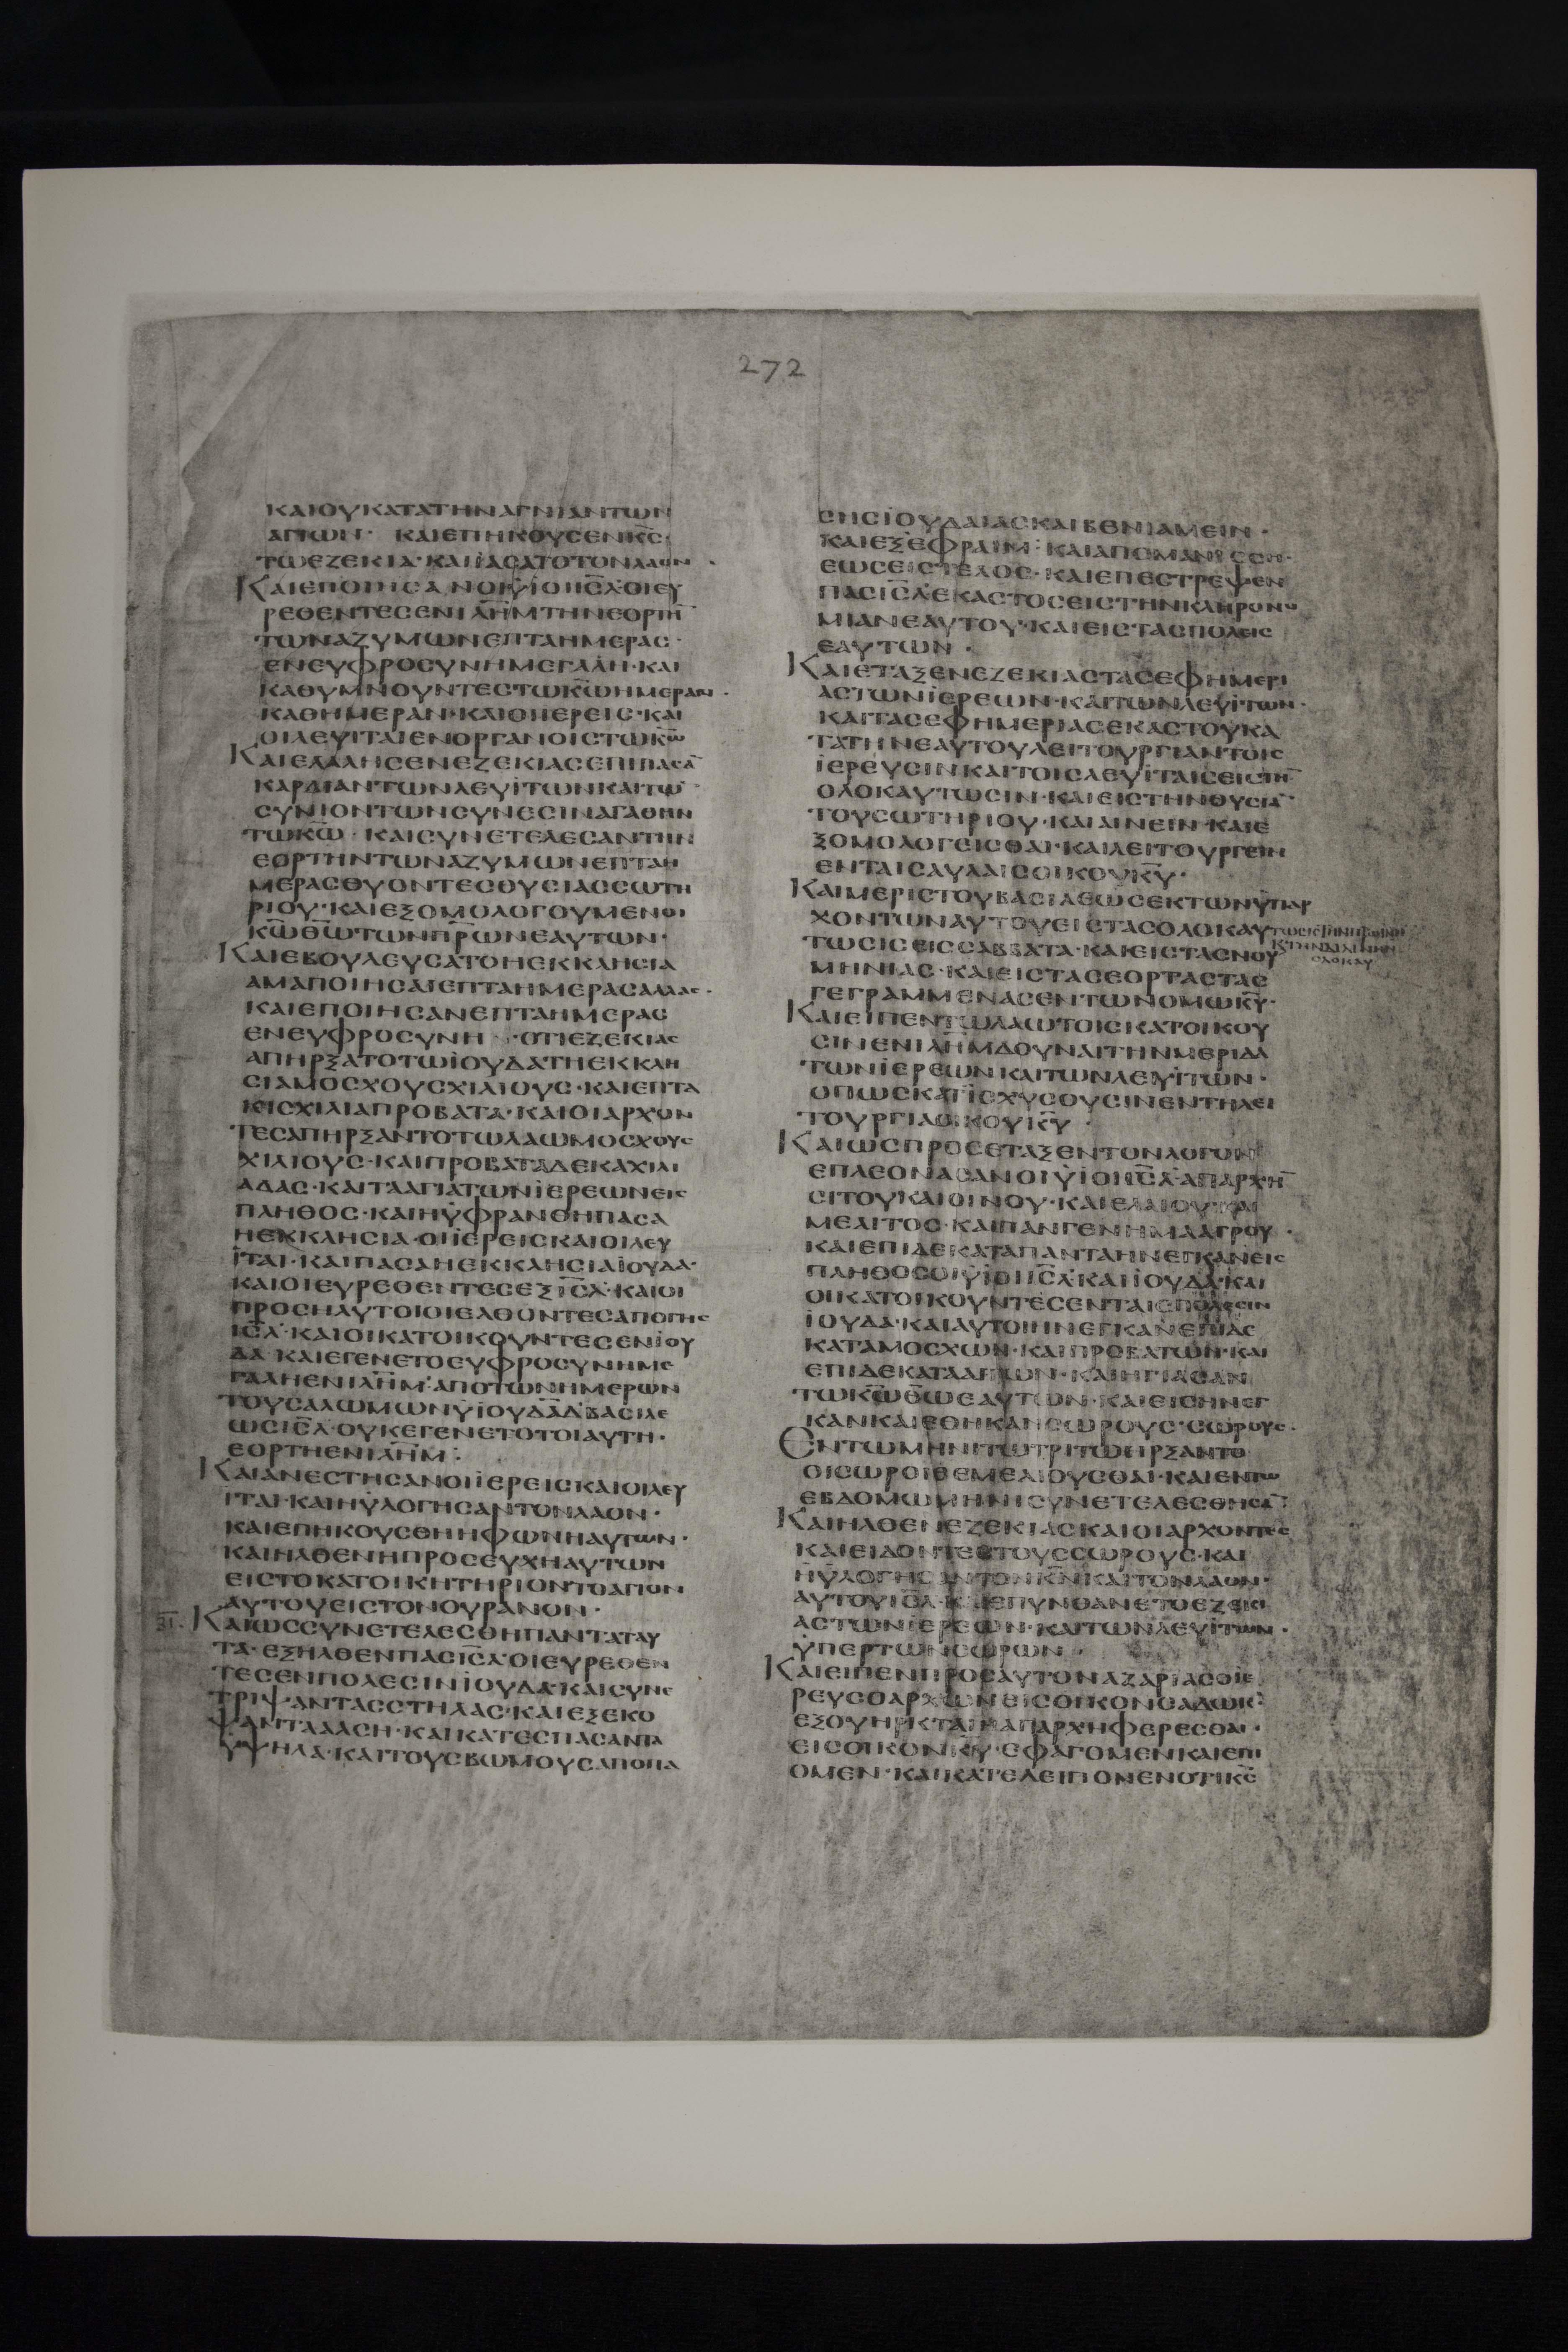 272
ΚΑΙΟΥΚΑΤΑΤΗΝΑΓΝΙΑΝΤΩΝ
ΑΓΙΩΝ· ΚΑΙΕΠΗΚΟΥϹΕΝΚ̅Ϲ̅
ΤΩΕΖΕΚΙΑ·ΚΑΙΪΑϹΑΤΟΤΟΝΛΑΟΝ·
ΚΑΙΕΠΟΙΗϹΑΝΟΙΫΙΟΙΙ̅Ϲ̅Λ̅·ΟΙΕΥ
ΡΕΘΕΝΤΕϹΕΝΙΛ̅Η̅Μ̅ΤΗΝΕΟΡΤΗ̅
ΤΩΝΑΖΥΜΩΝΕΠΤΑΗΜΕΡΑϹ·
ΕΝΕΥΦΡΟϹΥΝΗΜΕΓΑΛΗ·ΚΑΙ
ΚΑΘΥΜΝΟΥΝΤΕϹΤΩΚ̅Ω̅ΗΜΕΡΑΝ·
ΚΑΘΗΜΕΡΑΝ·ΚΑΙΟΙΙΕΡΕΙϹ·ΚΑΙ
ΟΙΛΕΥΙΤΑΙΕΝΟΡΓΑΝΟΙϹΤΩΚ̅Ω̅
ΚΑΙΕΛΑΛΗϹΕΝΕΖΕΚΙΑϹΕΠΙΠΑϹΑ̅
ΚΑΡΔΙΑΝΤΩΝΛΕΥΙΤΩΝΚΑΙΤΩ̅
ϹΥΝΙΟΝΤΩΝϹΥΝΕϹΙΝΑΓΑΘΗΝ
ΤΩΚ̅Ω̅·ΚΑΙϹΥΝΕΤΕΛΕϹΑΝΤΗΝ
ΕΟΡΤΗΝΤΩΝΑΖΥΜΩΝΕΠΤΑΗ
ΜΕΡΑϹΘΥΟΝΤΕϹΘΥϹΙΑϹϹΩΤΗ
ΡΙΟΥ·ΚΑΙΕΞΟΜΟΛΟΓΟΥΜΕΝΟΙ
Κ̅Ω̅Θ̅Ω̅ΤΩΝΠ̅Ρ̅ΩΝΕΑΥΤΩΝ·
ΚΑΙΕΒΟΥΛΕΥϹΑΤΟΗΕΚΚΛΗϹΙΑ
ΑΜΑΠΟΙΗϹΑΙΕΠΤΑΗΜΕΡΑϹΑΛΛΑϹ·
ΚΑΙΕΠΟΙΗϹΑΝΕΠΤΑΗΜΕΡΑϹ
ΕΝΕΥΦΡΟϹΥΝΗ·ΟΤΙΕΖΕΚΙΑϹ
ΑΠΗΡΞΑΤΟΤΩΪΟΥΔΑΤΗΕΚΚΛΗ
ϹΙΑΜΟϹΧΟΥϹΧΙΛΙΟΥϹ·ΚΑΙΕΠΤΑ
ΚΙϹΧΙΛΙΑΠΡΟΒΑΤΑ·ΚΑΙΟΙΑΡΧΟΝ
ΤΕϹΑΠΗΡΞΑΝΤΟΤΩΛΑΩΜΟϹΧΟΥϹ
ΧΙΛΙΟΥϹ·ΚΑΙΠΡΟΒΑΤΑΔΕΚΑΧΙΛΙ
ΑΔΑϹ·ΚΑΙΤΑΑΓΙΑΤΩΝΪΕΡΕΩΝΕΙϹ
ΠΛΗΘΟϹ·ΚΑΙΗΫΦΡΑΝΘΗΠΑϹΑ
ΗΕΚΚΛΗϹΙΑ·ΟΙΪΕΡΕΙϹΚΑΙΟΙΛΕΥ
ΪΤΑΙ·ΚΑΙΠΑϹΑΗΕΚΚΛΗϹΙΑΪΟΥΔΑ·
ΚΑΙΟΙΕΥΡΕΘΕΝΤΕϹΕΞΙ̅Ϲ̅Λ̅·ΚΑΙΟΙ
ΠΡΟϹΗΛΥΤΟΙΟΙΕΛΘΟΝΤΕϹΑΠΟΓΗϹ
Ι̅Ϲ̅Λ̅·ΚΑΙΟΙΚΑΤΟΙΚΟΥΝΤΕϹΕΝΪΟΥ
ΔΑ·ΚΑΙΕΓΕΝΕΤΟΕΥΦΡΟϹΥΝΗΜΕ
ΓΑΛΗΕΝΙΛ̅Η̅Μ̅·ΑΠΟΤΩΝΗΜΕΡΩΝ
ΤΟΥϹΑΛΩΜΩΝΫΙΟΥΔ̅Α̅Δ̅ΒΑϹΙΛΕ
ΩϹΙ̅Ϲ̅Λ̅·ΟΥΚΕΓΕΝΕΤΟΤΟΙΑΥΤΗ·
ΕΟΡΤΗΕΝΙΛ̅Η̅Μ̅:
ΚΑΙΑΝΕϹΤΗϹΑΝΟΙΪΕΡΕΙϹΚΑΙΟΙΛΕΥ
ΪΤΑΙ·ΚΑΙΗΫΛΟΓΗϹΑΝΤΟΝΛΑΟΝ·
ΚΑΙΕΠΗΚΟΥϹΘΗΗΦΩΝΗΑΥΤΩΝ·
ΚΑΙΗΛΘΕΝΗΠΡΟϹΕΥΧΗΑΥΤΩΝ
ΕΙϹΤΟΚΑΤΟΙΚΗΤΗΡΙΟΝΤΟΑΓΙΟΝ
ΑΥΤΟΥΕΙϹΤΟΝΟΥΡΑΝΟΝ·
31. ΚΑΙΩϹϹΥΝΕΤΕΛΕϹΘΗΠΑΝΤΑΤΑΥ
ΤΑ·ΕΞΗΛΘΕΝΠΑϹΙ̅Ϲ̅Λ̅·ΟΙΕΥΡΕΘΕΝ
ΤΕϹΕΝΠΟΛΕϹΙΝΪΟΥΔΑ·ΚΑΙϹΥΝΕ
ΤΡΙΨΑΝΤΑϹϹΤΗΛΑϹ·ΚΑΙΕΞΕΚΟ
ΨΑΝΤΑΑΛϹΗ·ΚΑΙΚΑΤΕϹΠΑϹΑΝΤΑ
ΫΨΗΛΑ·ΚΑΙΤΟΥϹΒΩΜΟΥϹΑΠΟΠΑ
ϹΗϹΪΟΥΔΑΙΑϹΚΑΙΒΕΝΙΑΜΕΙΝ·
ΚΑΙΕΞΕΦΡΑΪΜ·ΚΑΙΑΠΟΜΑΝ
ΕΩϹΕΙϹΤΕΛΟϹ·ΚΑΙΕΠΕϹΤΡΕΨΕΝ
ΠΑϹΙ̅Ϲ̅Λ̅ΕΚΑϹΤΟϹΕΙϹΤΗΝΚΛΗΡΟΝΟ
ΜΙΑΝΕΑΥΤΟΥ·ΚΑΙΕΙϹΤΑϹΠΟΛΕΙϹ
ΕΑΥΤΩΝ·
ΚΑΙΕΤΑΞΕΝΕΖΕΚΙΑϹΤΑϹΕΦΗΜΕΡΙ
ΑϹΤΩΝΪΕΡΕΩΝ·ΚΑΙΤΩΝΛΕΥΙΤΩΝ·
ΚΑΙΤΑϹΕΦΗΜΕΡΙΑϹΕΚΑϹΤΟΥΚΑ
ΤΑΤΗΝΕΑΥΤΟΥΛΕΙΤΟΥΡΓΙΑΝΤΟΙϹ
ΪΕΡΕΥϹΙΝΚΑΙΤΟΙϹΛΕΥΪΤΑΙϹΕΙϹΤΗ̅
ΟΛΟΚΑΥΤΩϹΙΝ·ΚΑΙΕΙϹΤΗΝΘΥϹΙΑ̅
ΤΟΥϹΩΤΗΡΙΟΥ·ΚΑΙΑΙΝΕΙΝ·ΚΑΙΕ
ΞΟΜΟΛΟΓΕΙϹΘΑΙ·ΚΑΙΛΕΙΤΟΥΡΓΕΙΝ
ΕΝΤΑΙϹΑΥΛΑΙϹΟΙΚΟΥΚ̅Υ̅·
ΚΑΙΜΕΡΙϹΤΟΥΒΑϹΙΛΕΩϹΕΚΤΩΝΫΠΑΡ
ΧΟΝΤΩΝΑΥΤΟΥΕΙϹΤΑϹΟΛΟΚΑΥ
ΤΩϹΙϹΕΙϹϹΑΒΒΑΤΑ·ΚΑΙΕΙϹΤΑϹΝΟΥ
ΜΗΝΙΑϹ·ΚΑΙΕΙϹΤΑϹΕΟΡΤΑϹΤΑϹ
ΓΕΓΡΑΜΜΕΝΑϹΕΝΤΩΝΟΜΩΚ̅Υ̅·
ΚΑΙΕΙΠΕΝΤΩΛΑΩΤΟΙϹΚΑΤΟΙΚΟΥ
ϹΙΝΕΝΙΛ̅Η̅Μ̅ΔΟΥΝΑΙΤΗΝΜΕΡΙΔΑ
ΤΩΝΪΕΡΕΩΝΚΑΙΤΩΝΛΕΥΪΤΩΝ·
ΟΠΩϹΚΑΤΙϹΧΥϹΟΥϹΙΝΕΝΤΗΛΕΙ
ΤΟΥΡΓΙΑΟΙΚΟΥΚ̅Υ̅·
ΚΑΙΩϹΠΡΟϹΕΤΑΞΕΝΤΟΝΛΟΓΟΝ
ΕΠΛΕΟΝΑϹΑΝΟΙΫΙΟΙΙ̅Ϲ̅Λ̅·ΑΠΑΡΧΗ̅
ϹΙΤΟΥΚΑΙΟΙΝΟΥ·ΚΑΙΕΛΑΙΟΥ·ΚΑΙ
ΜΕΛΙΤΟϹ·ΚΑΙΠΑΝΓΕΝΗΜΑΑΓΡΟΥ·
ΚΑΙΕΠΙΔΕΚΑΤΑΠΑΝΤΑΗΝΕΓΚΑΝΕΙϹ
ΠΛΗΘΟϹΟΙΫΙΟΙΙ̅Ϲ̅Λ̅·ΚΑΙΪΟΥΔΑ·ΚΑΙ
ΟΙΚΑΤΟΙΚΟΥΝΤΕϹΕΝΤΑΙϹΠΟΛΕϹΙΝ
ΪΟΥΔΑ·ΚΑΙΑΥΤΟΙΗΝΕΓΚΑΝΕΠΙΔΕ
ΚΑΤΑΜΟϹΧΩΝ·ΚΑΙΠΡΟΒΑΤΩΝ·ΚΑΙ
ΕΠΙΔΕΚΑΤΑΑΙΓΩΝ·ΚΑΙΗΓΙΑϹΑΝ
ΤΩΚ̅Ω̅Θ̅Ω̅ΕΑΥΤΩΝ·ΚΑΙΕΙϹΗΝΕΓ
ΚΑΝΚΑΙΕΘΗΚΑΝϹΩΡΟΥϹ·ϹΩΡΟΥϹ·
ΕΝΤΩΜΗΝΙΤΩΤΡΙΤΩΗΡΞΑΝΤΟ
ΟΙϹΩΡΟΙΘΕΜΕΛΙΟΥϹΘΑΙ·ΚΑΙΕΝΤΩ
ΕΒΔΟΜΩΜΗΝΙϹΥΝΕΤΕΛΕϹΘΗϹΑ̅
ΚΑΙΗΛΘΕΝΕΖΕΚΙΑϹΚΑΙΟΙΑΡΧΟΝΤΕϹ
ΚΑΙΕΙΔΟΝΤΕϹΤΟΥϹϹΩΡΟΥϹ·ΚΑΙ
ΗΫΛΟΓΗϹΑΝΤΟΝΚ̅Ν̅ΚΑΙΤΟΝΛΑΟΝ·
ΑΥΤΟΥΙ̅Ϲ̅Λ̅·ΚΑΙΕΠΥΝΘΑΝΕΤΟΕΖΕΚΙ
ΑϹΤΩΝΪΕΡΕΩΝ·ΚΑΙΤΩΝΛΕΥΙΤΩΝ·
ΫΠΕΡΤΩΝϹΩΡΩΝ·
ΚΑΙΕΙΠΕΝΠΡΟϹΑΥΤΟΝΑΖΑΡΙΑϹΟΪΕ
ΡΕΥϹΟΑΡΧΩΝΕΙϹΟΙΚΟΝϹΑΔΩΚ·
ΕΞΟΥΗΡΚΤΑΙΗΑΠΑΡΧΗΦΕΡΕϹΘΑΙ·
ΕΙϹΟΙΚΟΝΚ̅Υ̅·ΕΦΑΓΟΜΕΝΚΑΙΕΠΙ
ΟΜΕΝ·ΚΑΙΚΑΤΕΛΕΙΠΟΜΕΝΟΤΙΚ̅Ϲ̅